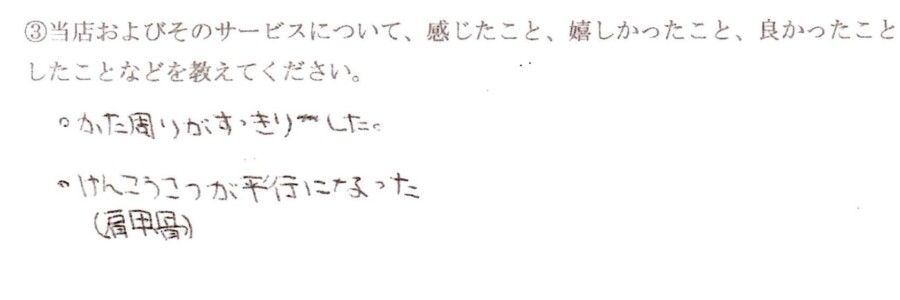 ③当店およびそのサービスについて、感じたこと、嬉しかったこと、良かったこと
したことなどを教えてください。
。かた周りがすっきりーした。
。けんこうこつが平行になった
(肩甲骨)